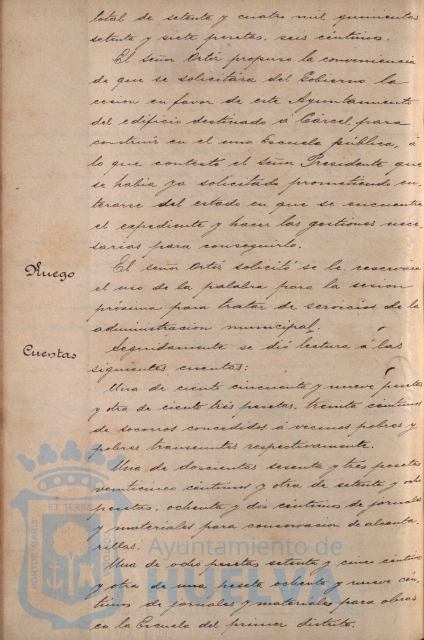 total de setenta y cuatro mil quinientas
setenta y siete pesetas, seis céntimos.
El señor Ortiz propuso la conveniencia
de que se solicitára del Gobierno la
cesion en favor de este Ayuntamiento
del edificio destinado á Cárcel, para
construir en el una Escuela pública, á
lo que contestó el señor Presidente que
se habia ya solicitado prometiendo en-
terarse del estado en que se encuentra
el expediente y hacer las gestiones nece-
sarias para conseguirlo.
Ruego
El señor Ortiz solicitó se le reservára
el uso de la palabra para la sesion
próxima para tratar de servicios de la
administracion municipal.
Cuentas
Seguidamente se dió lectura á las
siguientes cuentas:
Una de ciento cincuenta y nueve pesetas
y otra de ciento tres pesetas, treinta céntimos
de socorros concedidos á vecinos pobres y
pobres transeuntes respectivamente.
Una de doscientas sesenta y tres pesetas
veinticinco céntimos y otra de setenta y ocho
pesetas, ochenta y dos céntimos de jornales
y materiales para conservacion de alcanta-
rillas.
Una de ocho pesetas setenta y cinco céntimos
y otra de una peseta ochenta y nueve cén-
timos de jornales y materiales para obras
en la Escuela del primer distrito.
PORTUS MARIS
ET TERRAE
Ayuntamiento de
HUELVA